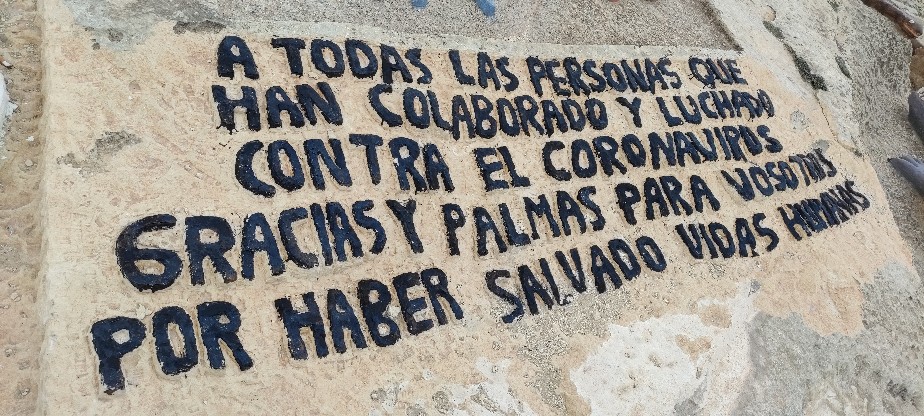 A TODAS LAS PERSONAS QUE
HAN COLABORADO Y LUCHADO
CONTRA EL CORONAVIRUS
GRACIAS Y PALMAS PARA VOSOTRXS
POR HABER SALVADO VIDAS HUMANAS